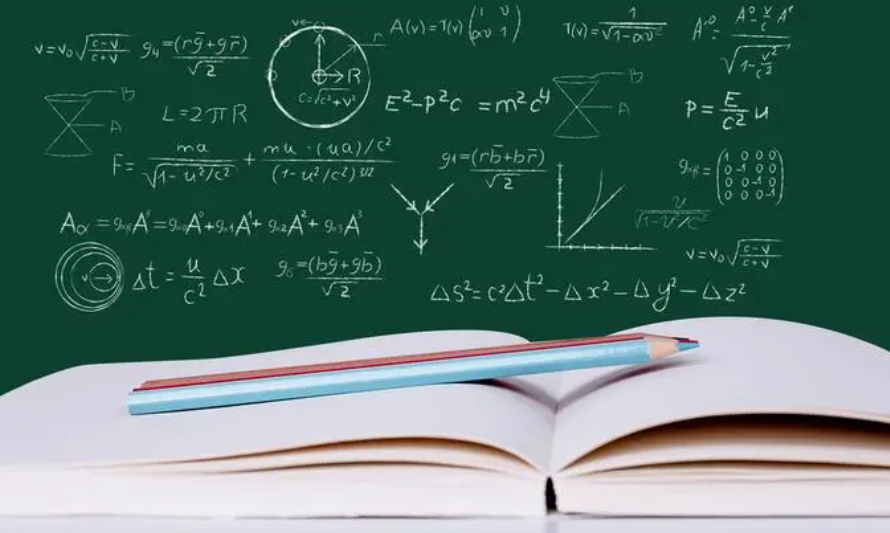 v=v₀√((c-v)/(c+v))
g₄=(rḡ+gr̄)/√2
v
r
R
c=√(c²+v²)
A(v)=γ(v)(1 v
αv 1)
γ(v)=1/√(1-αv²)
A'⁰=(A⁰-(v/c)A¹)/√(1-v²/c²)
B
A
L=2πR
E²-p²c=m²c⁴
B
A
P=(E/c²)u
F=ma/√(1-u²/c²)+mu·(ua)/c²/(1-u²/c²)^3/2
g₁=(rb̄+br̄)/√2
gαβ=(1 0 0 0
0 -1 0 0
0 0 -1 0
0 0 0 -1)
v/√(1-v²/c²)
v=v₀√((c-v)/(c+v))
v
Δt=(u/c²)Δx
g₅=(bḡ+gb̄)/√2
ΔS²=c²Δt²-Δx²-Δy²-Δz²